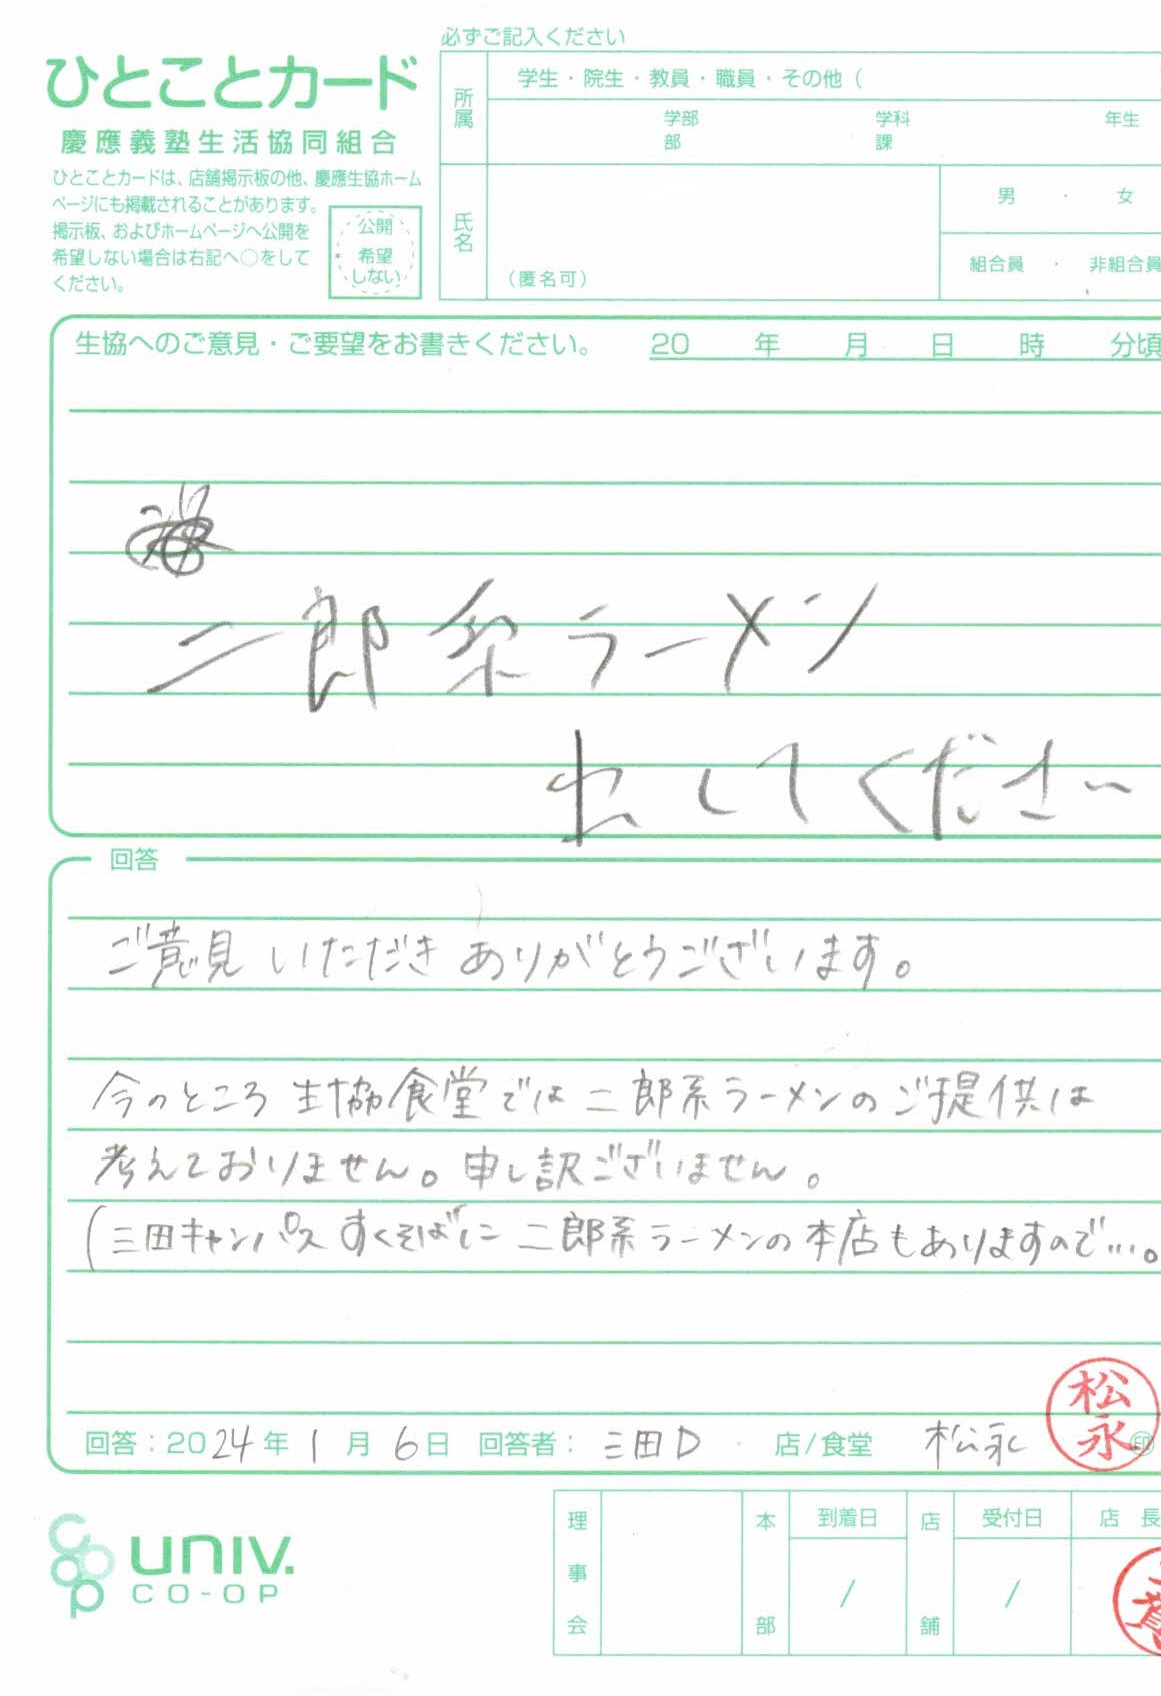 必ずご記入ください
ひとことカード
慶應義塾生活協同組合
ひとことカードは、店舗掲示板の他、慶應生協ホーム
ページにも掲載されることがあります。
掲示板、およびホームページへ公開を
希望しない場合は右記へ○をして
ください。
公開
希望
しない
所属
学生・院生・教員・職員・その他（
学部 学科 年生
部 課
氏名
（匿名可）
男 ・ 女
組合員 ・ 非組合員
生協へのご意見・ご要望をお書きください。 20 年 月 日 時 分頃
二郎系ラーメン
出してください
回答
ご意見いただきありがとうございます。
今のところ生協食堂では二郎系ラーメンのご提供は
考えておりません。申し訳ございません。
(三田キャンパスすぐそばに二郎系ラーメンの本店もありますので…。
回答：2024年1月6日 回答者：三田D 店/食堂 松永
松永
印
univ.
CO-OP
理事会
本部
到着日
/
店舗
受付日
/
店長